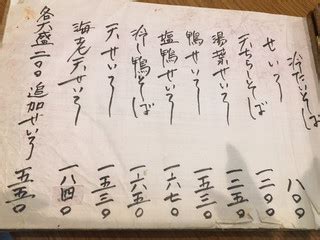 冷たいそば
せいろ 八〇〇
天ちらしそば 一三〇〇
湯葉せいろ 一二五〇
鴨せいろ 一五三〇
塩鴨せいろ 一六七〇
冷し鴨そば 一六五〇
天せいろ 一五三〇
海老天せいろ 一八四〇
各大盛二〇〇 追加せいろ 五五〇